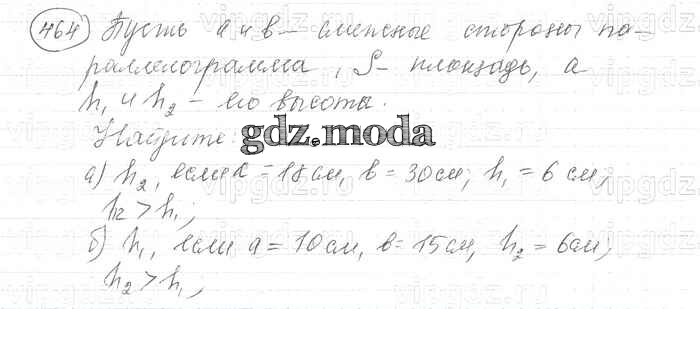 464 Пусть а и в – смежные стороны па-
раллелограмма, S – площадь, а
h₁ и h₂ – его высоты.
Найдите:
gdz.moda
а) h₂, если а = 18 см, в = 30 см; h₁ = 6 см,
h₂ > h₁;
б) h₁, если а = 10 см, в = 15 см, h₂ = 6 см;
h₂ > h₁;